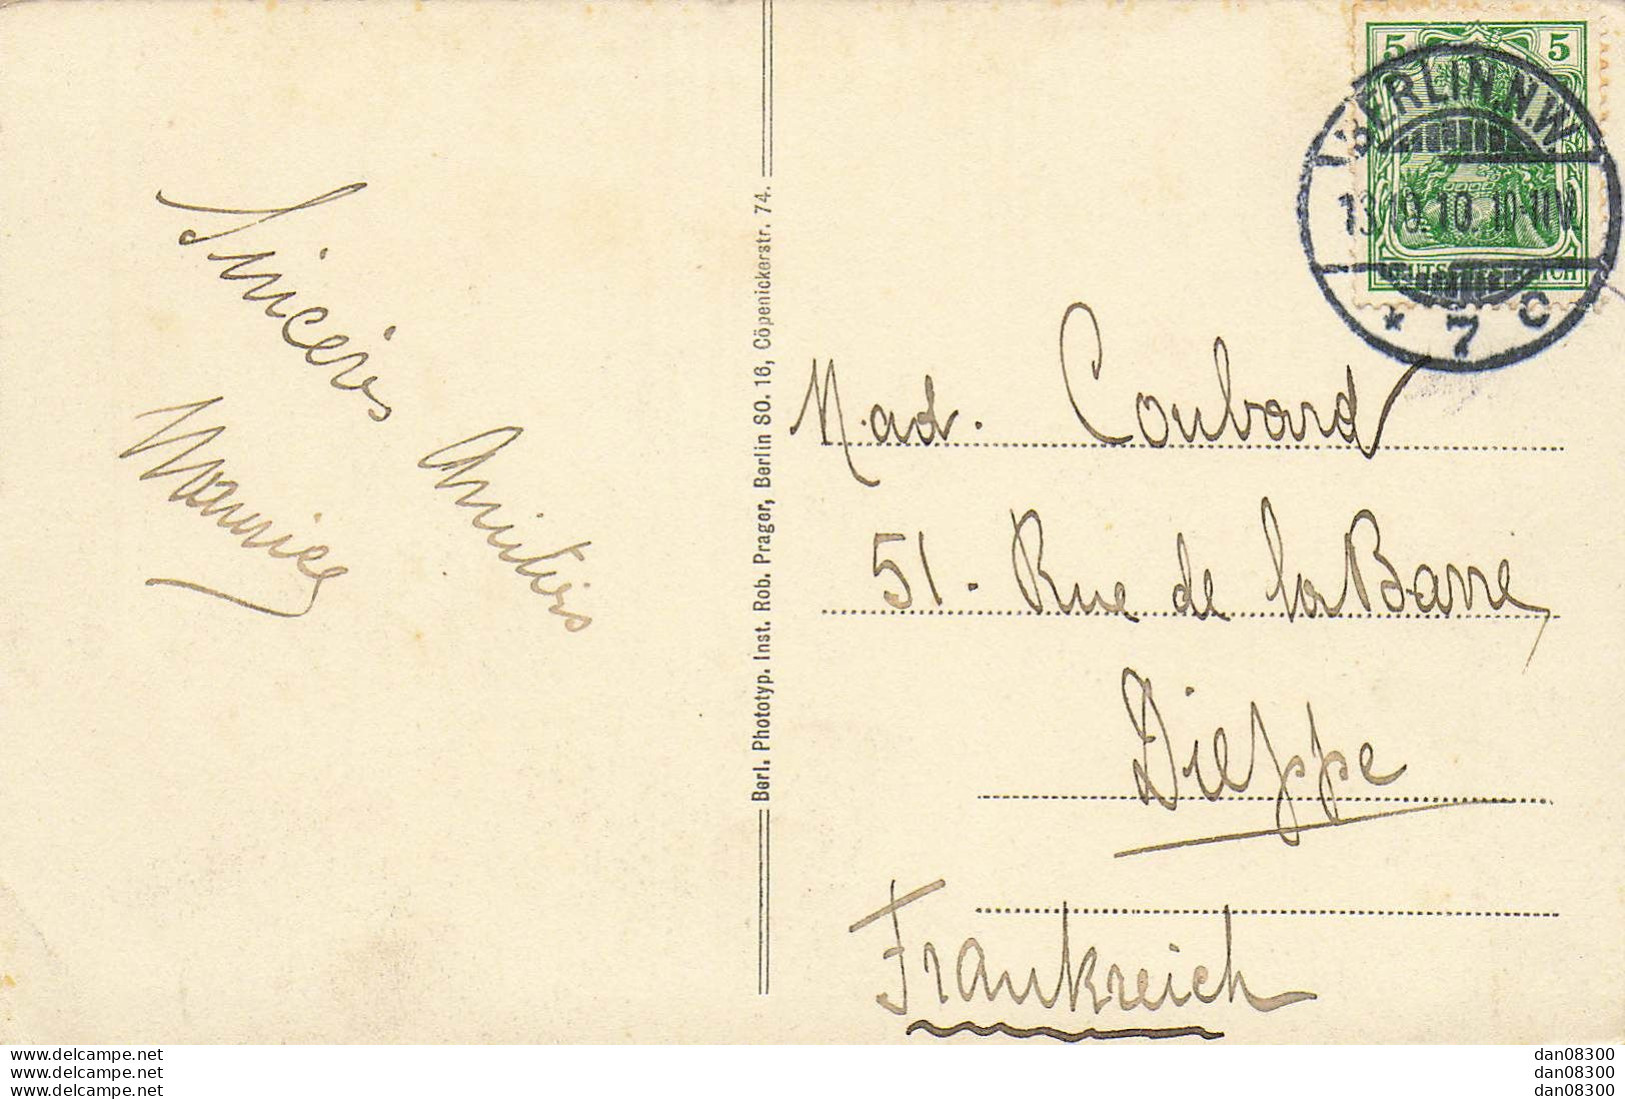 Sincères
Amitiés
Maurice
Berl. Phototyp. Inst. Rob. Prager, Berlin SO. 16, Cöpenickerstr. 74.
5 5
DEUTSCHES REICH
BERLIN.N.W.
13.10.10.10-11V.
* 7 c
Mad. Coubard
51. Rue de la Barre,
Dieppe
Frankreich
www.delcampe.net
www.delcampe.net
www.delcampe.net
dan08300
dan08300
dan08300